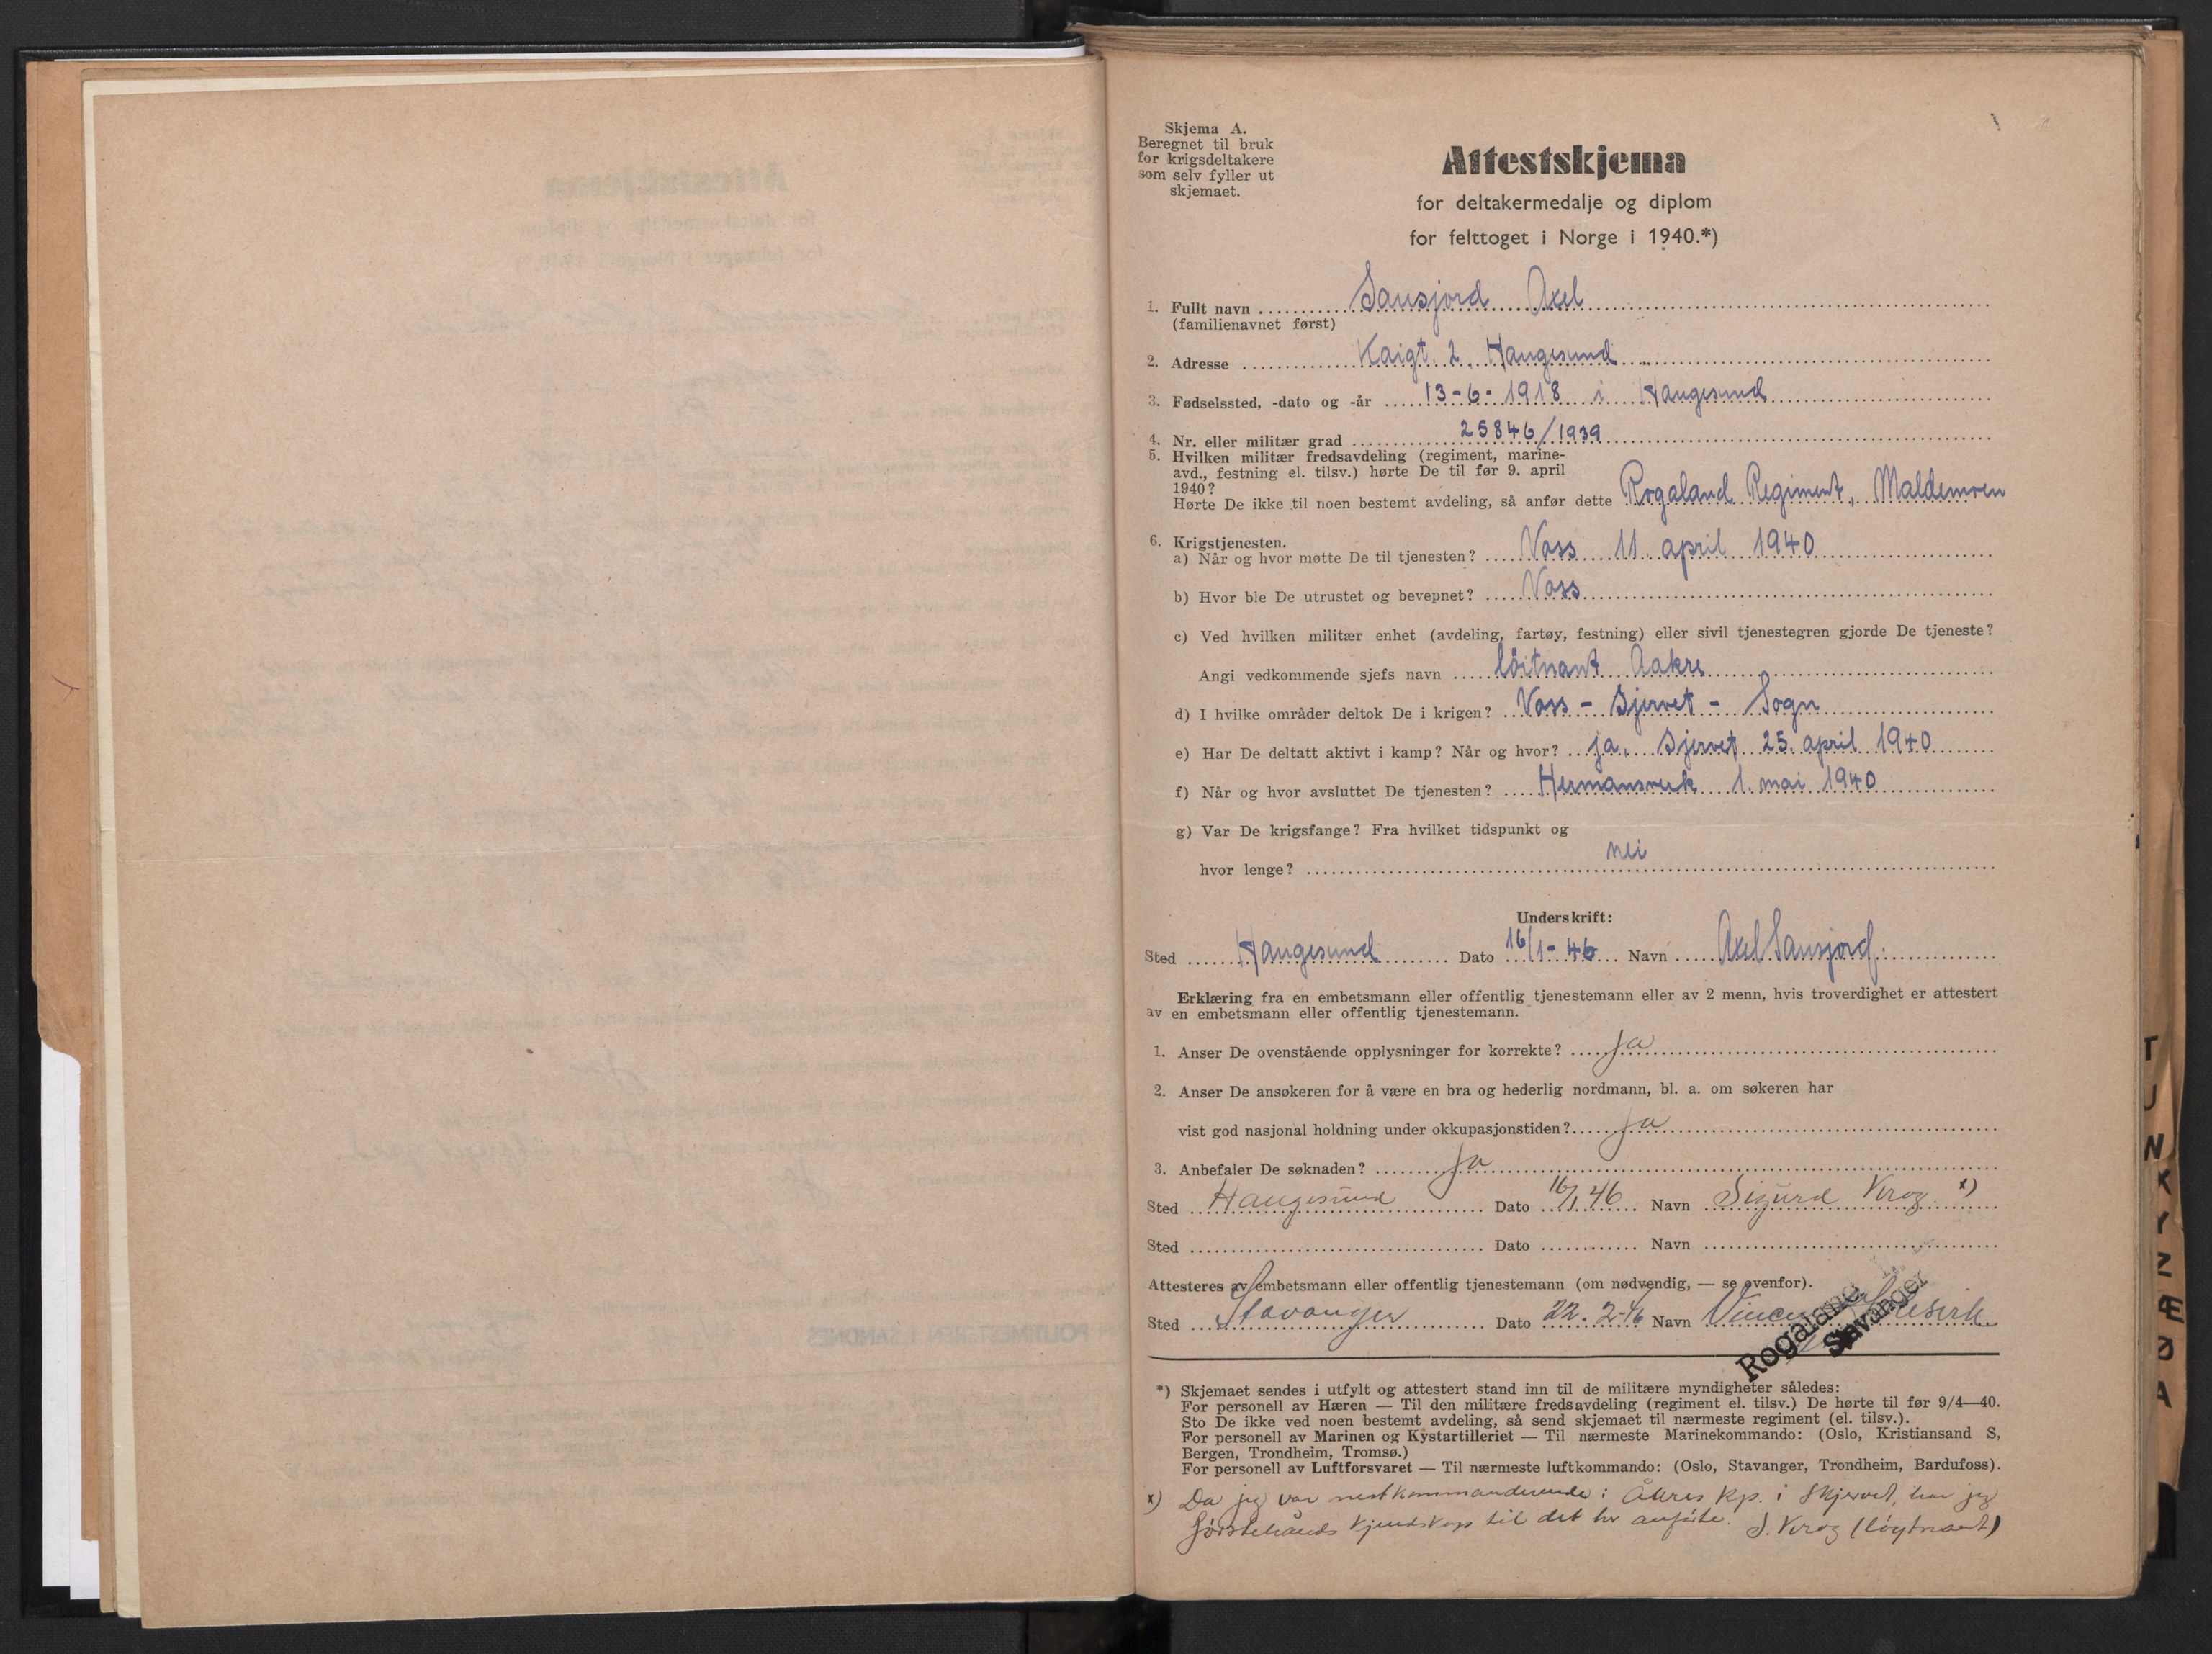 Skjema A.
Beregnet til bruk
for krigsdeltakere
som selv fyller ut
skjemaet.
Attestskjema
for deltakermedalje og diplom
for felttoget i Norge i 1940.*)
1. Fullt navn Sausjord Axel
(familienavnet først)
2. Adresse Kaigt. 2, Haugesund
3. Fødselssted, -dato og -år 13-6-1918 i Haugesund
4. Nr. eller militær grad 25846/1939
5. Hvilken militær fredsavdeling (regiment, marine-
avd., festning el. tilsv.) hørte De til før 9. april
1940?
Hørte De ikke til noen bestemt avdeling, så anfør dette Rogaland Regiment, Maldemoen
6. Krigstjenesten.
a) Når og hvor møtte De til tjenesten? Voss 11. april 1940
b) Hvor ble De utrustet og bevepnet? Voss
c) Ved hvilken militær enhet (avdeling, fartøy, festning) eller sivil tjenestegren gjorde De tjeneste?
Angi vedkommende sjefs navn löitnant Aakre
d) I hvilke områder deltok De i krigen? Voss - Skjervet - Sogn
e) Har De deltatt aktivt i kamp? Når og hvor? ja. Skjervet 25. april 1940
f) Når og hvor avsluttet De tjenesten? Hermansverk 1. mai 1940
g) Var De krigsfange? Fra hvilket tidspunkt og
hvor lenge? nei
Underskrift:
Sted Haugesund Dato 16/1-46 Navn Axel Sausjord.
Erklæring fra en embetsmann eller offentlig tjenestemann eller av 2 menn, hvis troverdighet er attestert
av en embetsmann eller offentlig tjenestemann.
1. Anser De ovenstående opplysninger for korrekte? ja
2. Anser De ansøkeren for å være en bra og hederlig nordmann, bl. a. om søkeren har
vist god nasjonal holdning under okkupasjonstiden? ja
3. Anbefaler De søknaden? ja
Sted Haugesund Dato 16/1 46 Navn Sigurd Krog x)
Sted Dato Navn
Attesteres av embetsmann eller offentlig tjenestemann (om nødvendig, — se ovenfor).
Sted Stavanger Dato 22.2-46 Navn
Rogaland
Stavanger
*) Skjemaet sendes i utfylt og attestert stand inn til de militære myndigheter således:
For personell av Hæren — Til den militære fredsavdeling (regiment el. tilsv.) De hørte til før 9/4—40.
Sto De ikke ved noen bestemt avdeling, så send skjemaet til nærmeste regiment (el. tilsv.).
For personell av Marinen og Kystartilleriet — Til nærmeste Marinekommando: (Oslo, Kristiansand S,
Bergen, Trondheim, Tromsø.)
For personell av Luftforsvaret — Til nærmeste luftkommando: (Oslo, Stavanger, Trondheim, Bardufoss).
x) Da jeg var nestkommanderende i Åkres Kp. i Skjervet, har jeg
förstehånds kjendskap til det her anförte. S. Krog (löytnant)